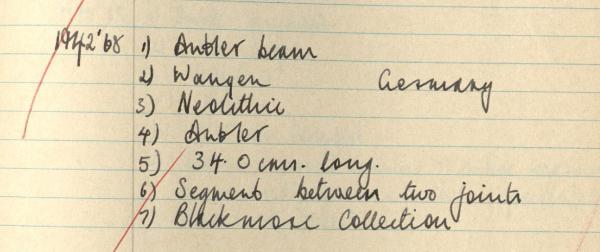 1942'68 1) Antler beam
2) Wangen Germany
3) Neolithic
4) Antler
5) 34.0 cms. long.
6) Segment between two joints
7) Blackmore Collection